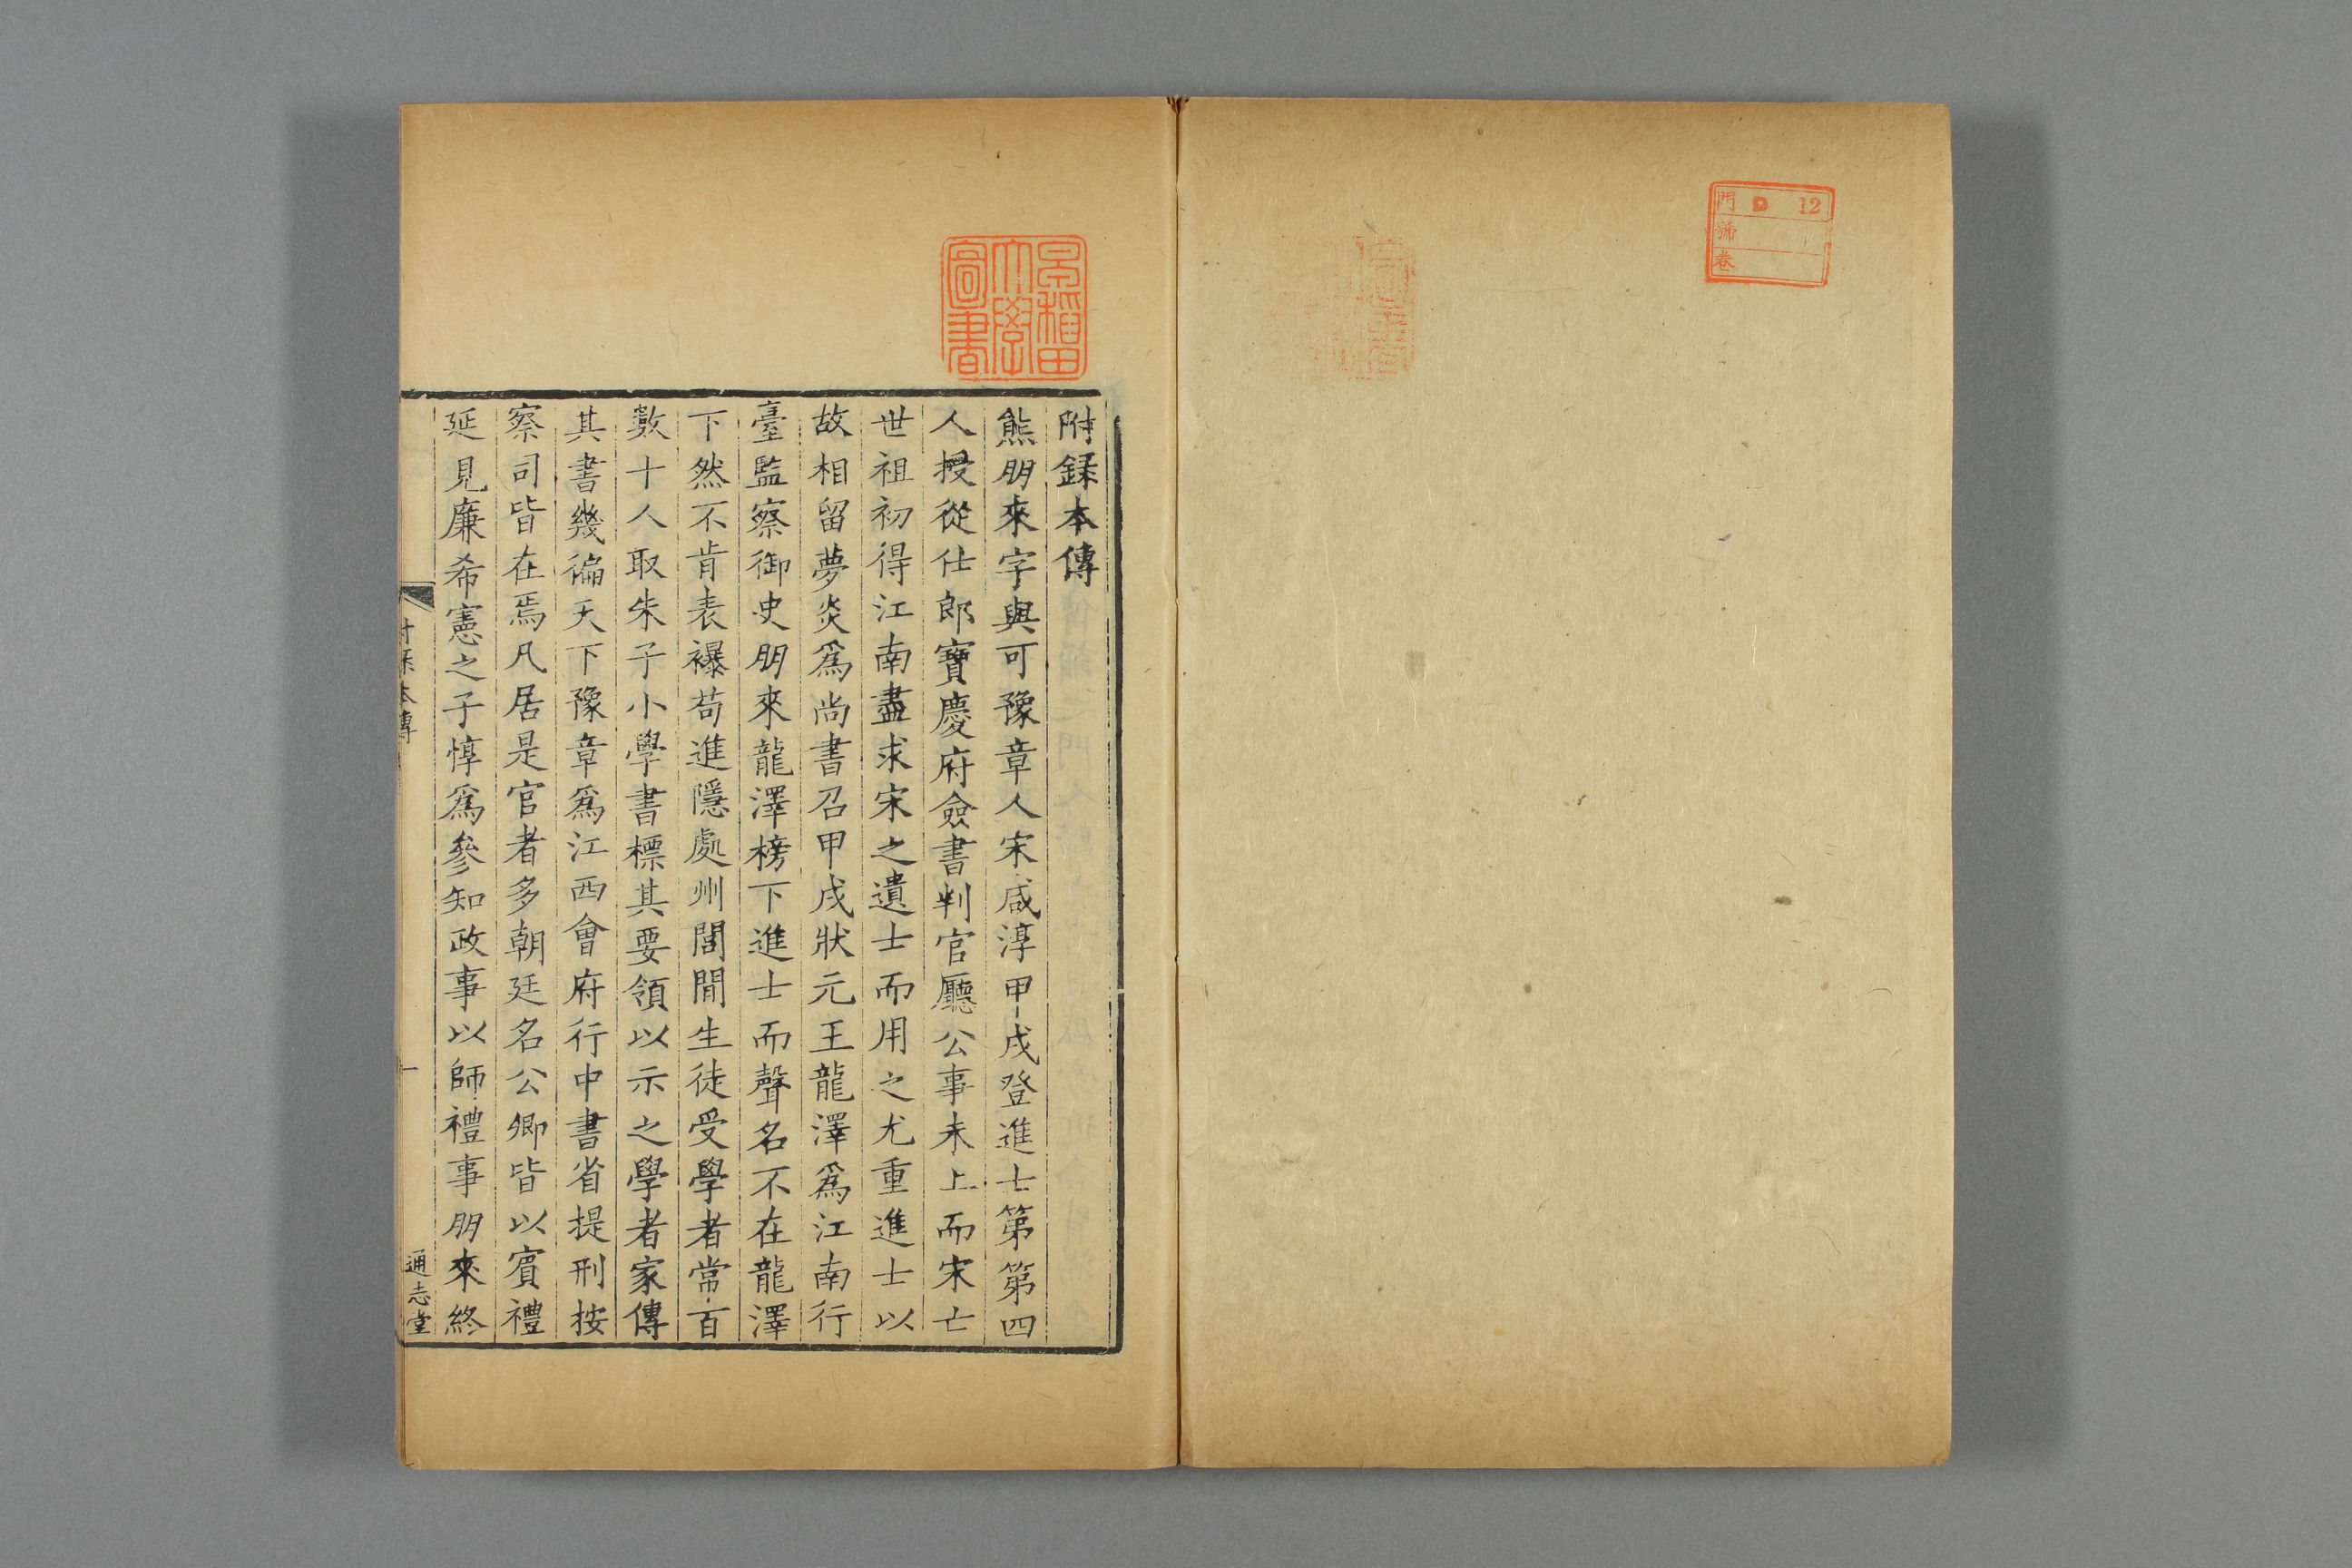 門 D 12
號
卷
早稻田
大學
圖書
附録本傳
熊朋來字與可豫章人宋咸淳甲戌登進士第第四
人授從仕郎寶慶府僉書判官廳公事未上而宋亡
世祖初得江南盡求宋之遺士而用之尤重進士以
故相留夢炎爲尚書召甲戌狀元王龍澤爲江南行
臺監察御史朋來龍澤榜下進士而聲名不在龍澤
下然不肯表襮苟進隱處州閭間生徒受學者常百
數十人取朱子小學書標其要領以示之學者家傳
其書幾徧天下豫章爲江西會府行中書省提刑按
察司皆在焉凡居是官者多朝廷名公卿皆以賓禮
延見廉希憲之子惇爲參知政事以師禮事朋來終
附録本傳 一 通志堂